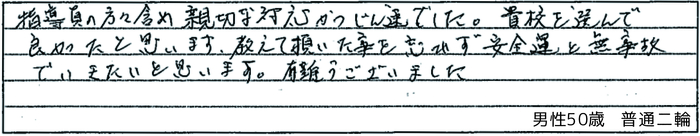 指導員の方々含め親切な対応かつじん速でした。貴校を選んで
良かたと思います、教えて頂いた事を忘れず安全運と無事故
でいきたいと思います。有難うございました
男性50歳 普通二輪